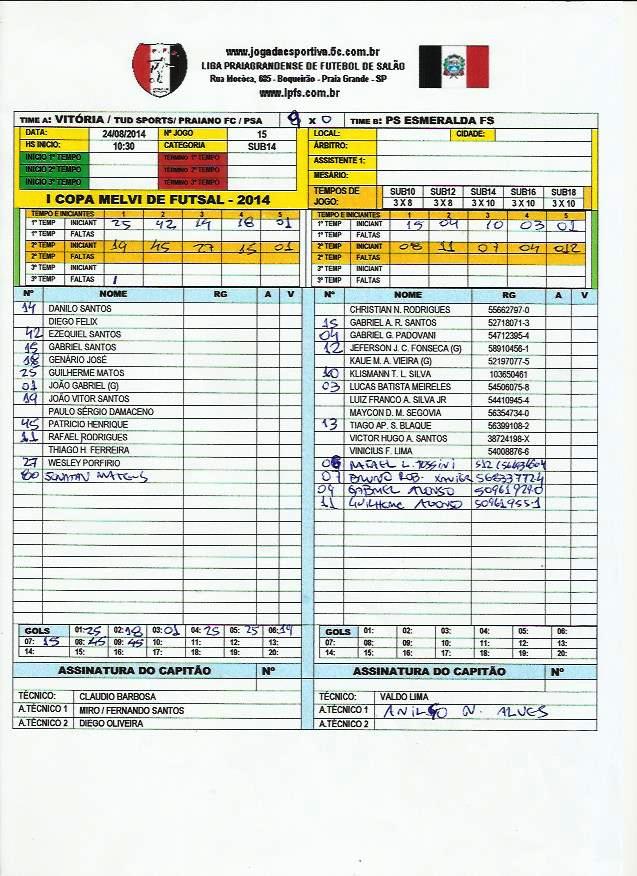 www.jogadaesportiva.5c.com.br
LIGA PRAIAGRANDENSE DE FUTEBOL DE SALÃO
Rua Mococa, 635 - Boqueirão - Praia Grande - SP
www.lpfs.com.br
TIME A: VITÓRIA / TUD SPORTS/ PRAIANO FC / PSA 9 X 0 TIME B: PS ESMERALDA FS
DATA: 24/08/2014 Nº JOGO 15 LOCAL: CIDADE:
HS INICIO: 10:30 CATEGORIA SUB14 ÁRBITRO:
INICIO 1º TEMPO TÉRMINO 1º TEMPO ASSISTENTE 1:
INICIO 2º TEMPO TÉRMINO 2º TEMPO MESÁRIO:
INICIO 3º TEMPO TÉRMINO 3º TEMPO
TEMPOS DE JOGO: SUB10 SUB12 SUB14 SUB16 SUB18
3 X 8 3 X 8 3 X 10 3 X 10 3 X 10
I COPA MELVI DE FUTSAL - 2014
TEMPO E INICIANTES 1 2 3 4 5 TEMPO E INICIANTES 1 2 3 4 5
1º TEMP INICIANT 25 42 14 18 01 1º TEMP INICIANT 15 04 10 03 01
1º TEMP FALTAS 1º TEMP FALTAS
2º TEMP INICIANT 19 45 27 15 01 2º TEMP INICIANT 08 11 07 04 012
2º TEMP FALTAS 2º TEMP FALTAS
3º TEMP INICIANT 3º TEMP INICIANT
3º TEMP FALTAS 3º TEMP FALTAS
Nº NOME RG A V Nº NOME RG A V
14 DANILO SANTOS CHRISTIAN N. RODRIGUES 55662797-0
DIEGO FELIX 15 GABRIEL A. R. SANTOS 52718071-3
42 EZEQUIEL SANTOS 04 GABRIEL G. PADOVANI 54712395-4
15 GABRIEL SANTOS 12 JEFERSON J. C. FONSECA (G) 58910456-1
18 GENÁRIO JOSÉ KAUE M. A. VIEIRA (G) 52197077-5
25 GUILHERME MATOS 10 KLISMANN T. L. SILVA 103650461
01 JOÃO GABRIEL (G) 03 LUCAS BATISTA MEIRELES 54506075-8
19 JOÃO VITOR SANTOS LUIZ FRANCO A. SILVA JR 54410945-4
PAULO SÉRGIO DAMACENO MAYCON D. M. SEGOVIA 56354734-0
45 PATRICIO HENRIQUE 13 TIAGO AP. S. BLAQUE 56399108-2
11 RAFAEL RODRIGUES VICTOR HUGO A. SANTOS 38724198-X
THIAGO H. FERREIRA VINICIUS F. LIMA 54008876-6
27 WESLEY PORFIRIO RAFAEL L.
MATEUS 07 BRUNO ROB. XAVIER 568337724
GABRIEL ALONSO
11 GUILHERME ALONSO 50961955-1
GOLS 01: 25 02: 18 03: 01 04: 25 05: 25 06: 14 GOLS 01: 02: 03: 04: 05: 06:
07: 15 08: 45 09: 45 10: 11: 12: 13: 07: 08: 09: 10: 11: 12: 13:
14: 15: 16: 17: 18: 19: 20: 14: 15: 16: 17: 18: 19: 20:
ASSINATURA DO CAPITÃO Nº ASSINATURA DO CAPITÃO Nº
TÉCNICO: CLAUDIO BARBOSA TÉCNICO: VALDO LIMA
A.TÉCNICO 1 MIRO / FERNANDO SANTOS A.TÉCNICO 1 N. ALVES
A.TÉCNICO 2 DIEGO OLIVEIRA A.TÉCNICO 2